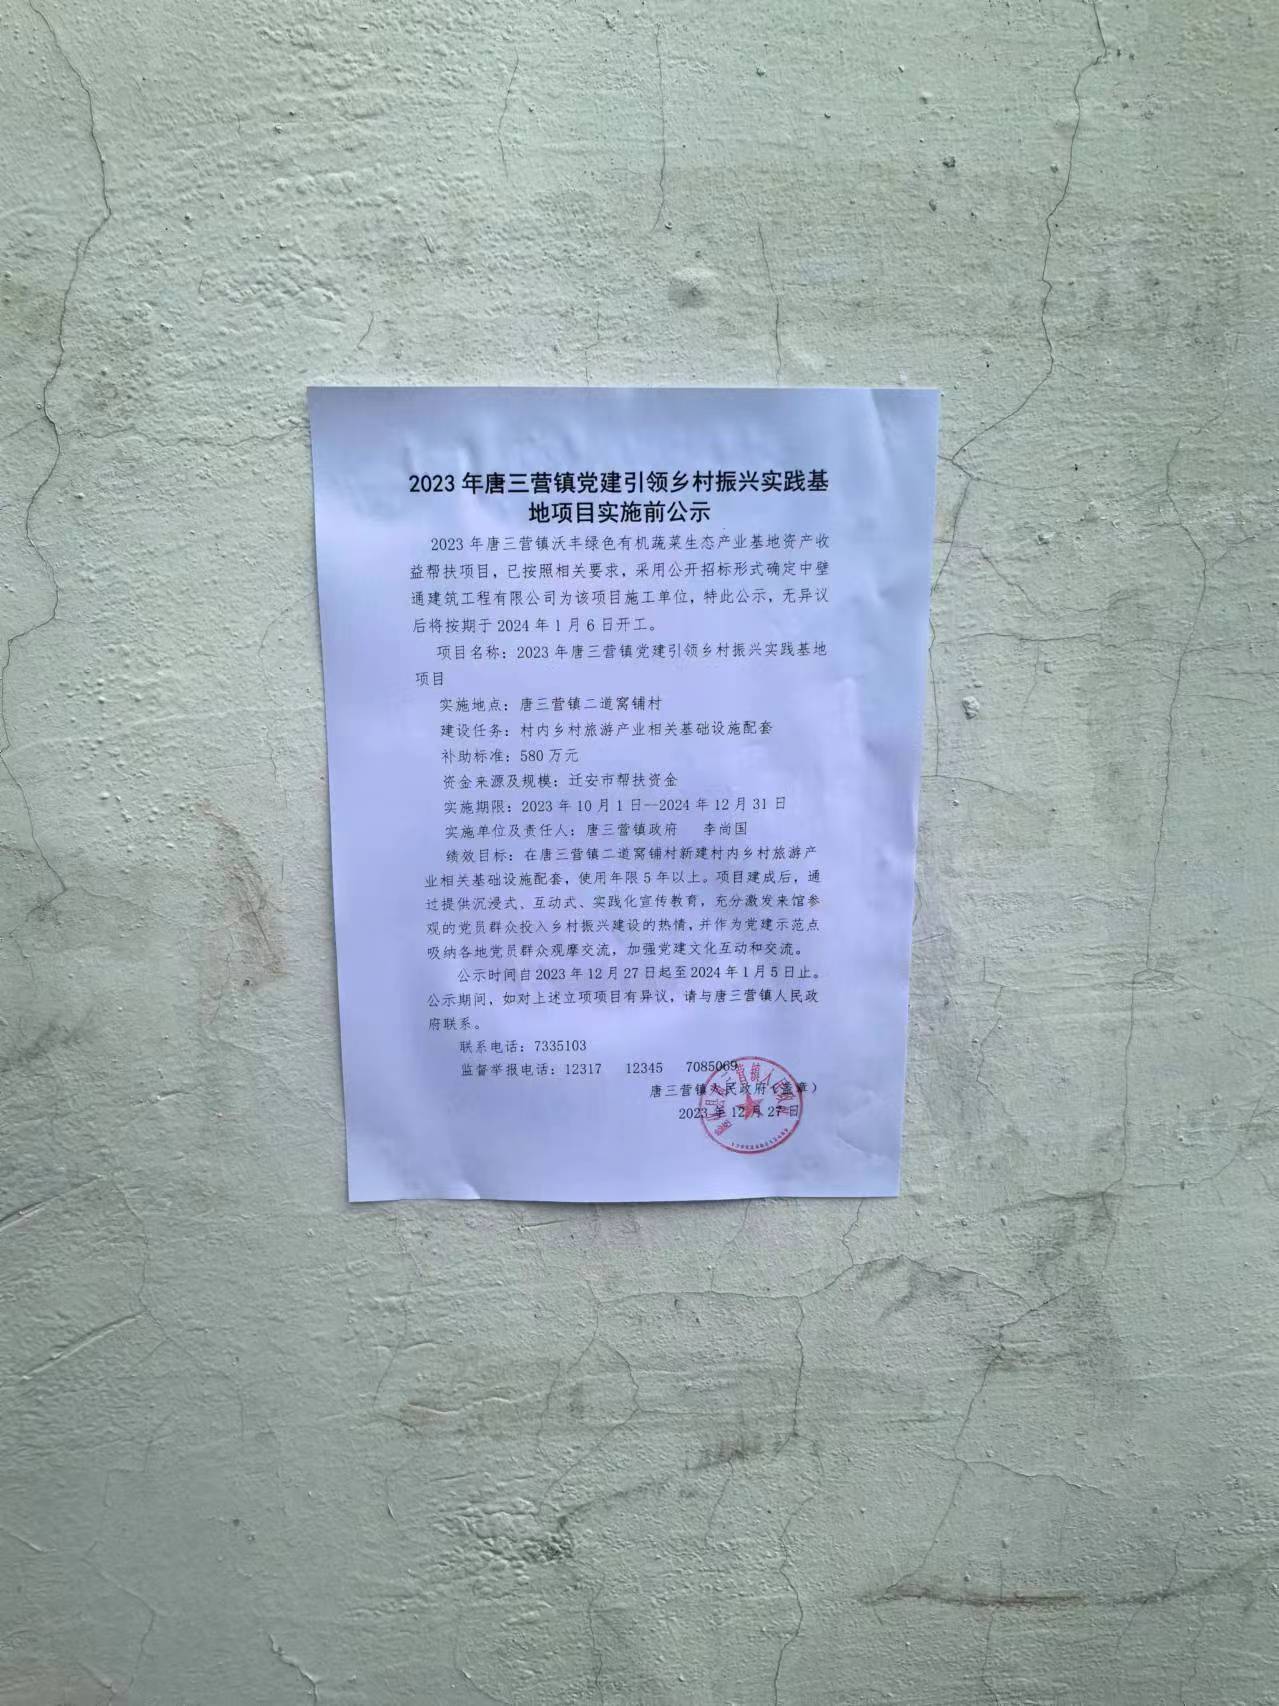 2023 年唐三营镇党建引领乡村振兴实践基
地项目实施前公示
2023 年唐三营镇沃丰绿色有机蔬菜生态产业基地资产收
益帮扶项目，已按照相关要求，采用公开招标形式确定中壁
通建筑工程有限公司为该项目施工单位，特此公示，无异议
后将按期于 2024 年 1 月 6 日开工。
项目名称：2023 年唐三营镇党建引领乡村振兴实践基地
项目
实施地点：唐三营镇二道窝铺村
建设任务：村内乡村旅游产业相关基础设施配套
补助标准：580 万元
资金来源及规模：迁安市帮扶资金
实施期限：2023 年 10 月 1 日--2024 年 12 月 31 日
实施单位及责任人：唐三营镇政府 李尚国
绩效目标：在唐三营镇二道窝铺村新建村内乡村旅游产
业相关基础设施配套，使用年限 5 年以上。项目建成后，通
过提供沉浸式、互动式、实践化宣传教育，充分激发来馆参
观的党员群众投入乡村振兴建设的热情，并作为党建示范点
吸纳各地党员群众观摩交流，加强党建文化互动和交流。
公示时间自 2023 年 12 月 27 日起至 2024 年 1 月 5 日止。
公示期间，如对上述立项项目有异议，请与唐三营镇人民政
府联系。
联系电话：7335103
监督举报电话：12317 12345 7085069
唐三营镇人民政府（盖章）
2023 年 12 月 27 日